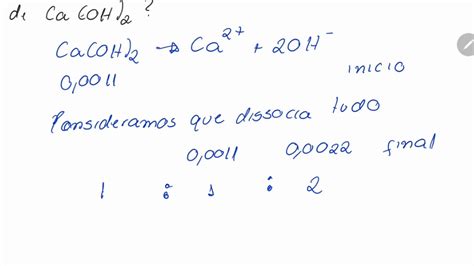 de Ca(OH)2 ?
Ca(OH)2 → Ca2+ + 2OH-
0,0011 inicio
Consideramos que dissocia tudo
0,0011 0,0022 final
1 : 1 : 2